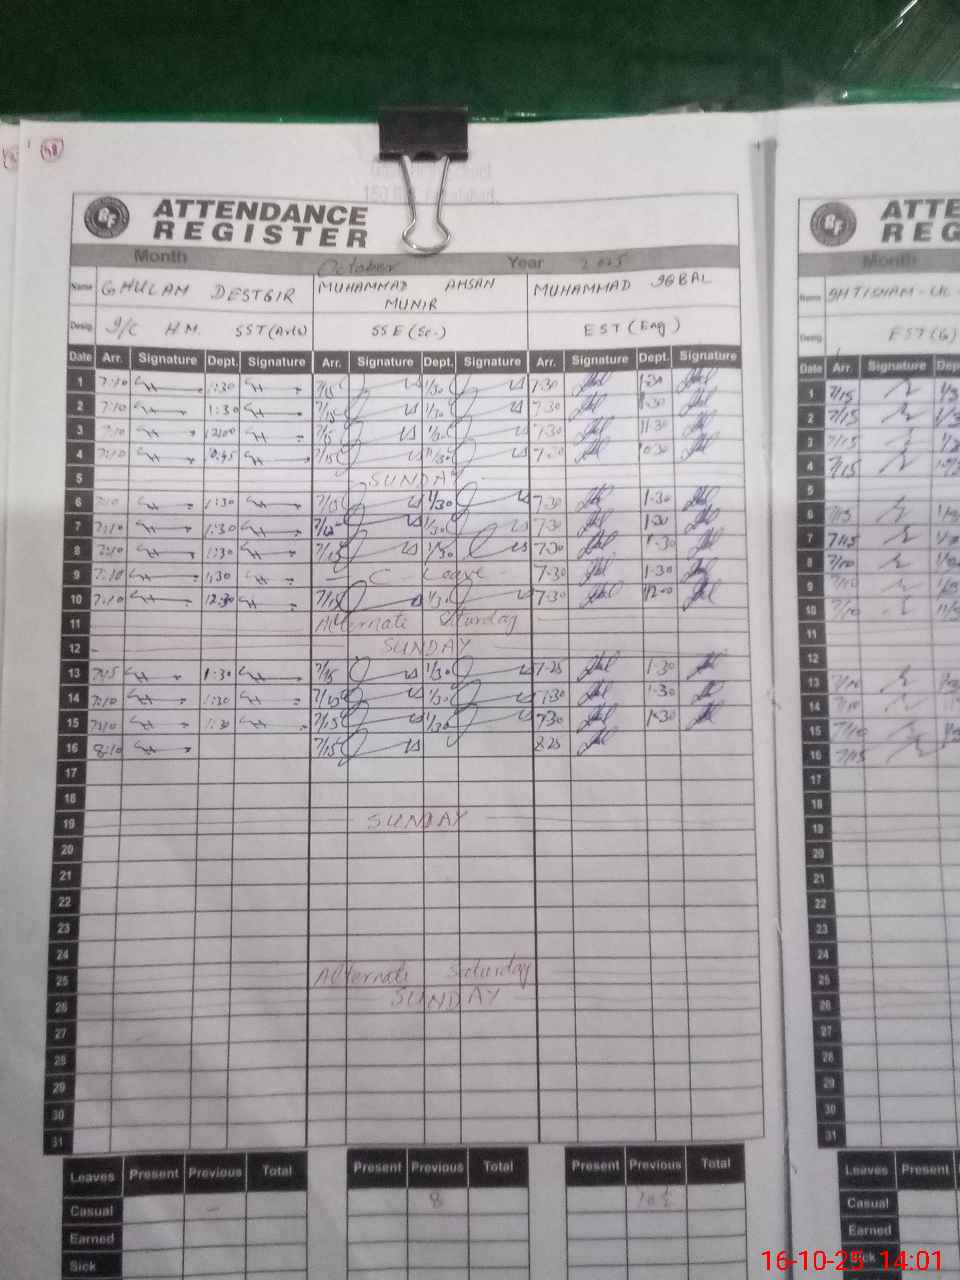 48
ATTENDANCE
REGISTER
Month October Year 2025
Name GHULAM DESTGIR MUHAMMAD AHSAN MUNIR MUHAMMAD IQBAL
Desig. I/C H.M. SST(Arts) SSE(Sc.) EST(Eng)
Date Arr. Signature Dept. Signature Arr. Signature Dept. Signature Arr. Signature Dept. Signature
1 7:10 1:30 7/15 1/30 7-30 1-30
2 7:10 1:30 7/15 1/30 7-30 1-30
3 7:10 12:00 7/15 7-30 11-30
4 7:10 10:45 7/15 7-30 10-30
5 SUNDAY
6 7:10 1:30 7/15 1/30 7-30 1-30
7 7:10 1:30 7/15 1/30 7-30 1-30
8 7:10 1:30 7/15 1/30 7-30 1-30
9 7:10 1:30 C-Leave 7-30 1-30
10 7:10 12:30 7/15 1/30 7-30
11 Alternate Saturday
12 SUNDAY
13 1:30 7/15 1/30 7-25 1-30
14 7:10 1:30 7/15 1/30 7-30 1-30
15 7:10 1:30 7/15 1/30 7-30 1-30
16 8:10 7/15 8-25
17
18
19 SUNDAY
20
21
22
23
24
25 Alternate Saturday
26 SUNDAY
27
28
29
30
31
Leaves Present Previous Total Present Previous Total Present Previous Total
Casual - 8
Earned
Sick
ATTE
REG
Month
Name
EST(G)
Date Arr. Signature Dep
1 7/15
2 7/15
3 7/15
4 7/15
5
6 7/15
7 7/15
8 7/10
9 7/10
10 7/10
11
12
13 7/10
14 7/10
15 7/10
16 7/15
17
18
19
20
21
22
23
24
25
26
27
28
29
30
31
Leaves Present
Casual
Earned
Sick
16-10-25 14:01